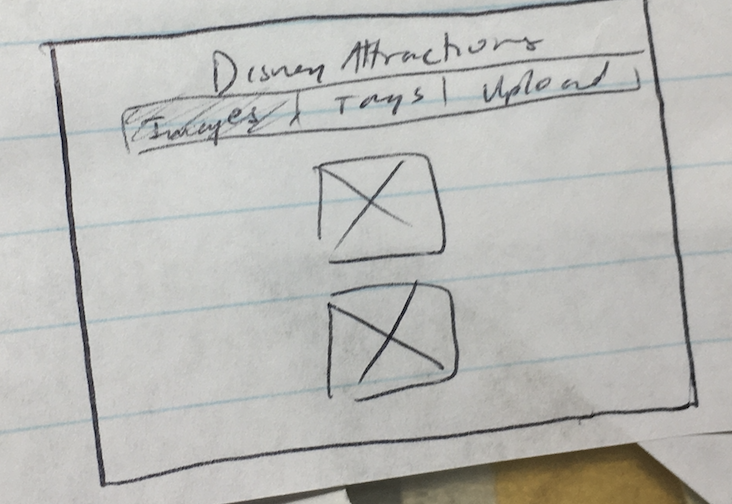 Disney Attractions
Images Tags Upload